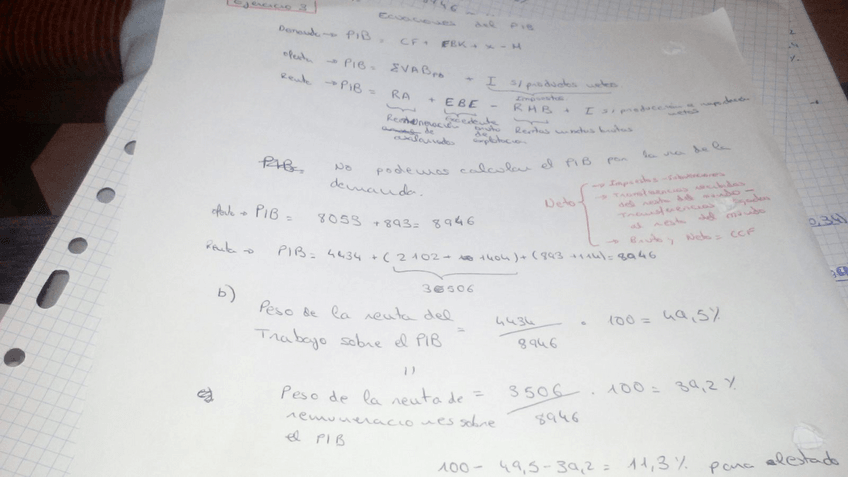 Ejercicio 3
Ecuaciones del PIB
Demanda → PIB = CF + FBK + X - M
oferta → PIB = ΣVABpb + I s/productos netos
Renta → PIB = RA + EBE - RMB + I s/producción e importación netos
Remuneración de asalariados
Excedente bruto de explotación
Rentas mixtas brutas
PIB= No podemos calcular el PIB por la vía de la demanda.
oferta → PIB = 8053 + 893 = 8946
Renta → PIB = 4434 + (2102 - 1404) + (893 + 114) = 8946
3506
Neto
→ Impuestos - subvenciones
→ Transferencias recibidas
del resto del mundo -
Transferencias pagadas
al resto del mundo
→ Bruto y Neto = CCF
b) Peso de la renta del
Trabajo sobre el PIB = 4434 / 8946 · 100 = 49,5%
c) Peso de la renta de
remuneraciones sobre
el PIB = 3506 / 8946 · 100 = 39,2%
100 - 49,5 - 39,2 = 11,3% para el estado
0,34)